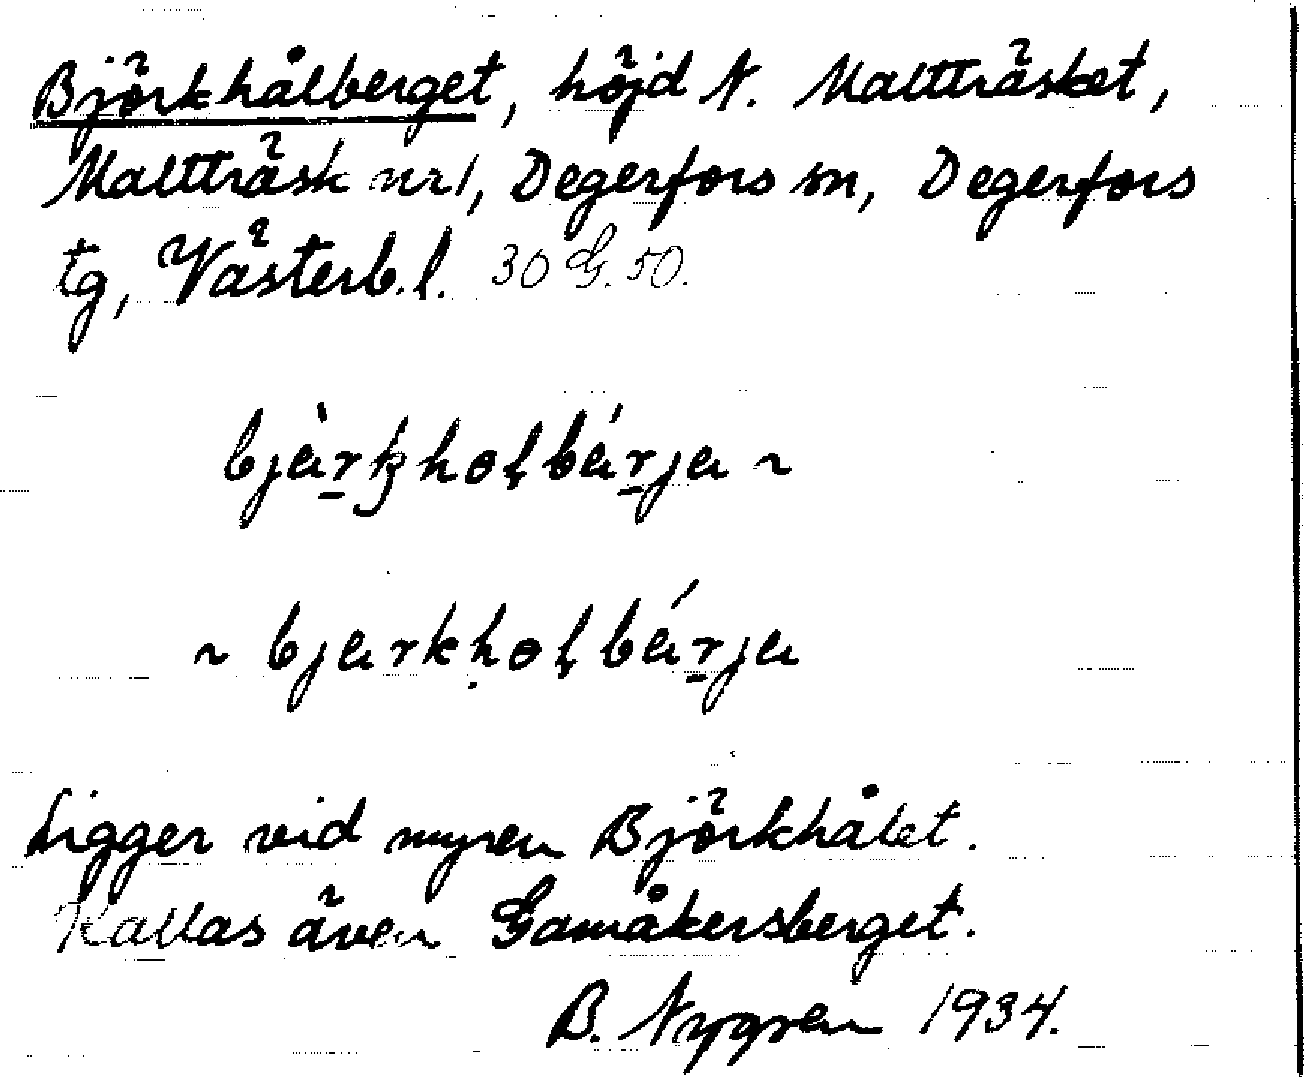 Björkhålberget, höjd N. Maltträsket,
Maltträsk nr 1, Degerfors sn, Degerfors
tg, Västerb.l. 30 G. 50.
bjàr̠kholbár̠ja ~
~ bjarkḥolbár̠ja
Ligger vid myren Björkhålet.
Kallas även Gamåkersberget.
B. Nygren 1934.